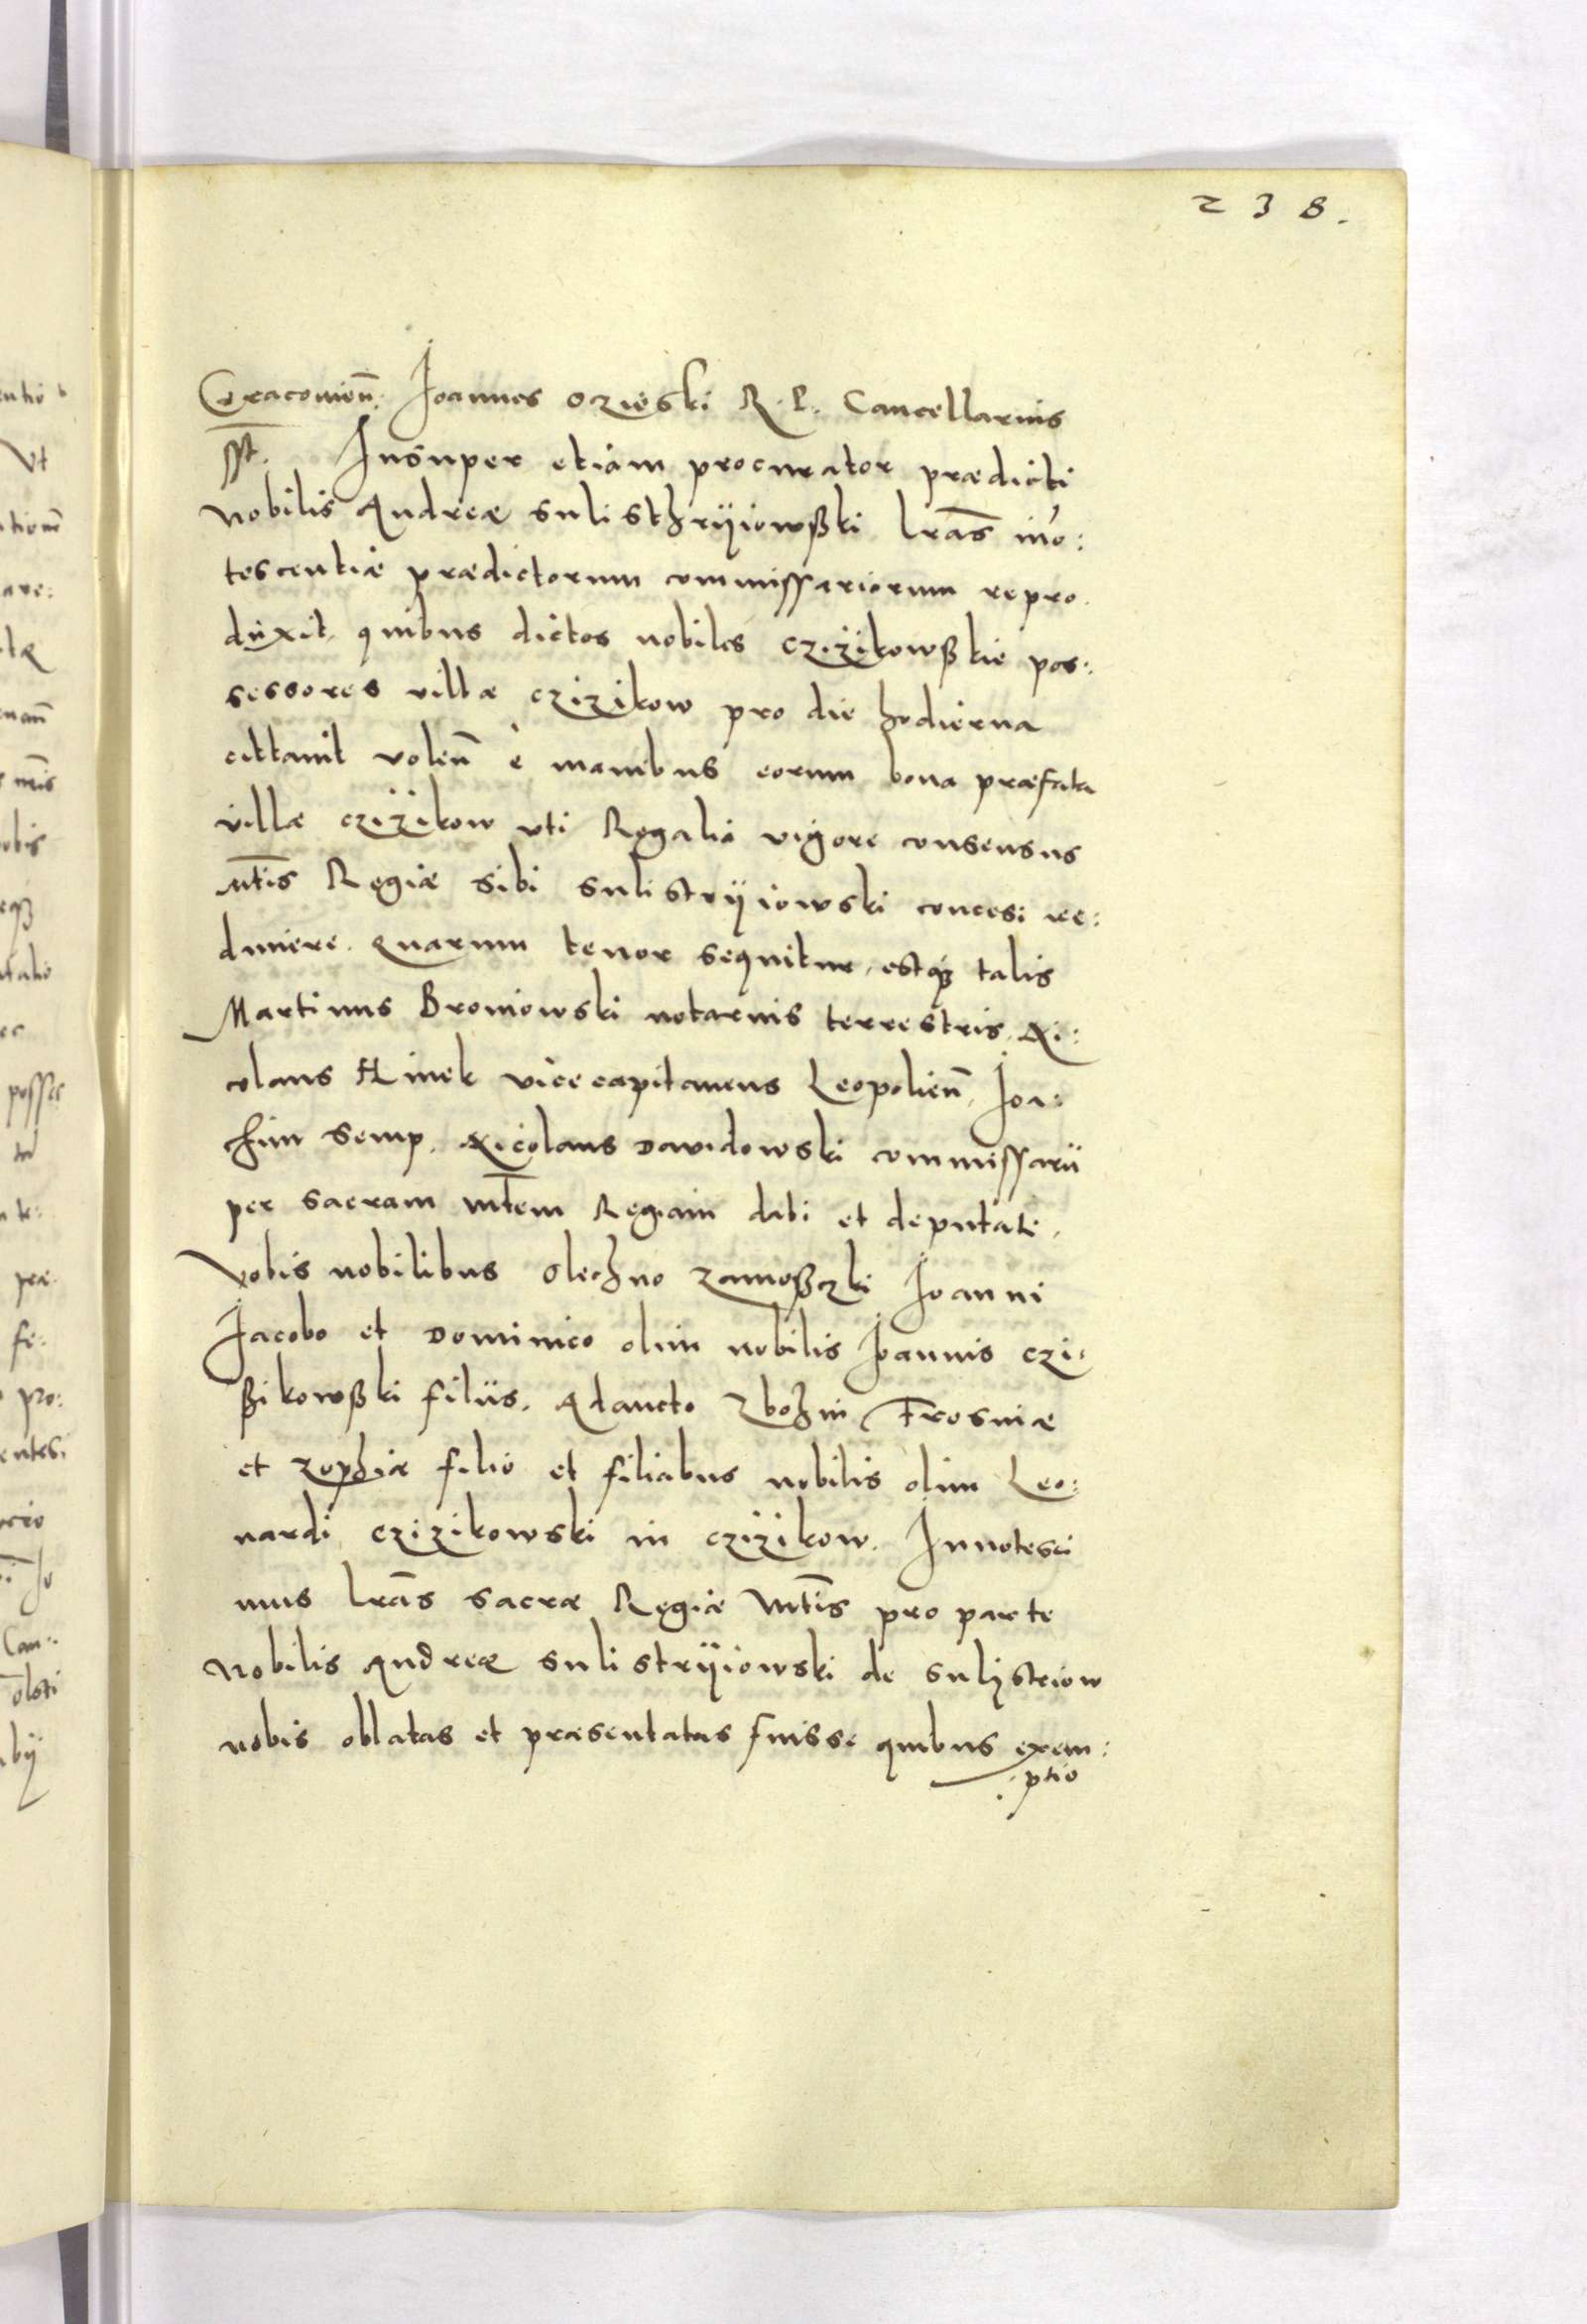 238.
Cracovieñ. Joannes Oczieski R. P. Cancellarius
sst. Insuper etiam procurator prædicti
Nobilis Andreæ Sulisthryiowßki lr̃as inno:
tescentiæ prædictorum commissariorum repro
duxit quibus dictos nobiles Czizikowßkie pos:
sessores villæ Czizikow pro die hodierna
cittavit voleñ è manibus eorum bona præfata
villæ Czizikow vti Regalia vigore consensus
Mt̃is Regiæ sibi Sulistryiowski concessi re:
dimere. Quarum tenor sequitur, estq₃ talis
Martinus Broniowski notarius terrestris. Ni:
colaus Hinek vicecapitaneus Leopolieñ, Joa:
chim Semp. Nicolaus Davidowski commissarii
per sacram Mt̃em Regiam dati et deputati.
Vobis nobilibus Olechno Zamoßczki Joanni
Jacobo et Dominico olim nobilis Joannis Czi:
ßikowßki filiis. Adaucto Zbożni Frosniæ
et Zophiæ filio et filiabus nobilis olim Leo:
nardi Czizikowski in Czizikow. Innotesci
mus lr̃as sacræ Regiæ Mt̃is pro parte
Nobilis Andreæ Sulistryiowski de Sulistriow
nobis oblatas et præsentatas fuisse quibus exem:
ptio